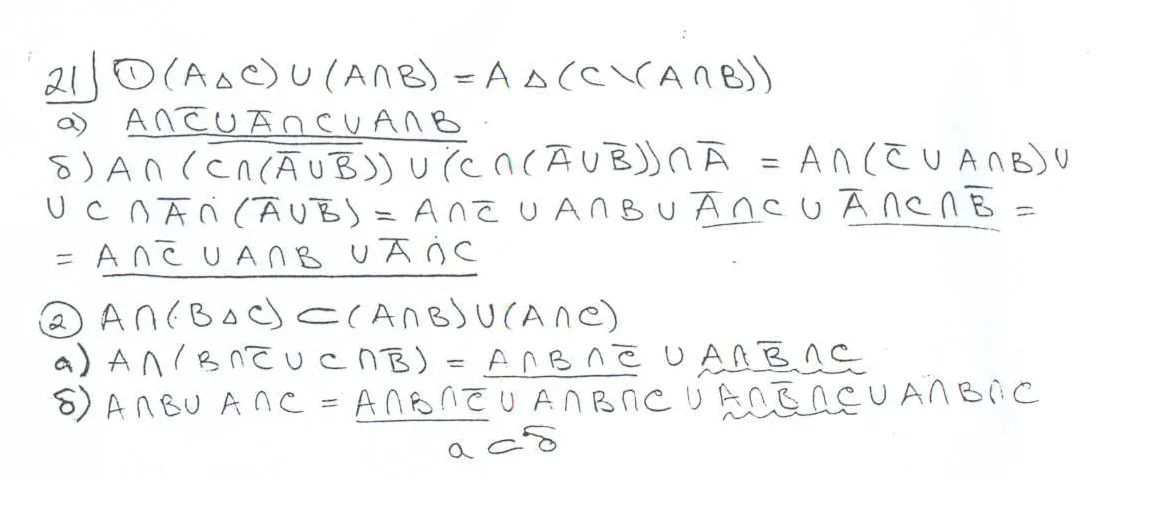 21) ① (A Δ C) ∪ (A ∩ B) = A Δ (C \ (A ∩ B))
а) A ∩ C̅ ∪ A̅ ∩ C ∪ A ∩ B
б) A ∩ (C̅ ̅∩̅ ̅(̅A̅ ̅∪̅ ̅B̅)̅) ∪ (C ∩ (A̅ ∪ B̅)) ∩ A̅ = A ∩ (C̅ ∪ A ∩ B) ∪
∪ C ∩ A̅ ∩ (A̅ ∪ B̅) = A ∩ C̅ ∪ A ∩ B ∪ A̅ ∩ C ∪ A̅ ∩ C ∩ B̅ =
= A ∩ C̅ ∪ A ∩ B ∪ A̅ ∩ C
② A ∩ (B Δ C) ⊂ (A ∩ B) ∪ (A ∩ C)
а) A ∩ (B ∩ C̅ ∪ C ∩ B̅) = A ∩ B ∩ C̅ ∪ A ∩ B̅ ∩ C
б) A ∩ B ∪ A ∩ C = A ∩ B ∩ C̅ ∪ A ∩ B ∩ C ∪ A ∩ B̅ ∩ C ∪ A ∩ B ∩ C
а ⊂ б